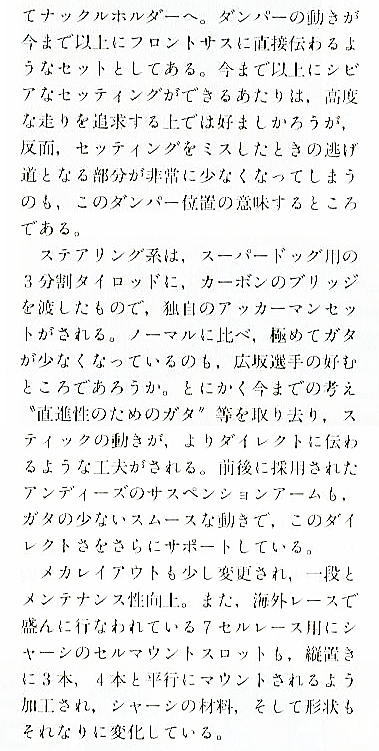 てナックルホルダーへ。ダンパーの動きが
今まで以上にフロントサスに直接伝わるよ
うなセットとしてある。今まで以上にシビ
アなセッティングができるあたりは，高度
な走りを追求する上では好ましかろうが，
反面，セッティングをミスしたときの逃げ
道となる部分が非常に少なくなってしまう
のも，このダンパー位置の意味するところ
である。
　ステアリング系は，スーパードッグ用の
３分割タイロッドに，カーボンのブリッジ
を渡したもので，独自のアッカーマンセッ
トがされる。ノーマルに比べ，極めてガタ
が少なくなっているのも，広坂選手の好む
ところであろうか。とにかく今までの考え
〝直進性のためのガタ〟等を取り去り，ス
ティックの動きが，よりダイレクトに伝わ
るような工夫がされる。前後に採用された
アンディーズのサスペンションアームも，
ガタの少ないスムースな動きで，このダイ
レクトさをさらにサポートしている。
　メカレイアウトも少し変更され，一段と
メンテナンス性向上。また，海外レースで
盛んに行なわれている７セルレース用にシ
ャーシのセルマウントスロットも，縦置き
に３本，４本と平行にマウントされるよう
加工され，シャーシの材料，そして形状も
それなりに変化している。